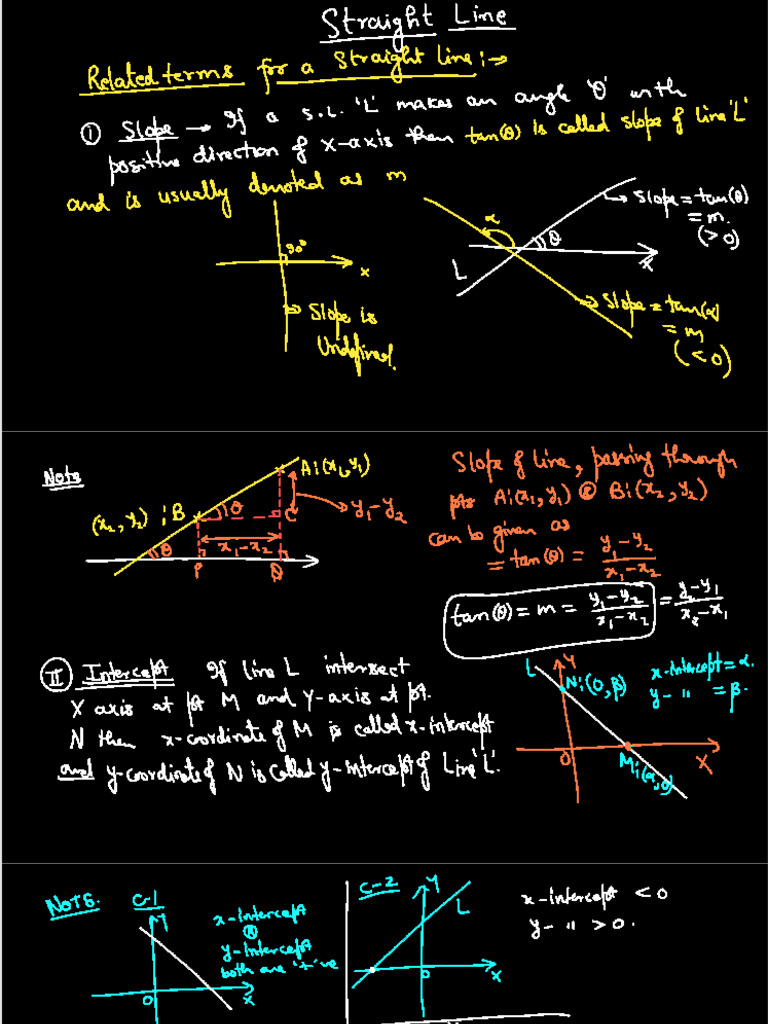 Straight Line
Related terms for a straight line :→
① Slope → If a s.L. 'L' makes an angle 'θ' with
positive direction of x-axis then tan(θ) is called slope of line 'L'
and is usually denoted as m
90°
x
→ Slope is
Undefined.
α
θ
L
x
→ Slope = tan(θ)
= m.
(>0)
→ Slope = tan(α)
= m
(<0)
Note
A:(x₁,y₁)
(x₂,y₂) : B
θ
C
→ y₁-y₂
x₁-x₂
θ
P
Q
Slope of line, passing through
pts A:(x₁,y₁) & B:(x₂,y₂)
can be given as
= tan(θ) = y₁-y₂ / x₁-x₂
tan(θ) = m = y₁-y₂ / x₁-x₂ = y₂-y₁ / x₂-x₁
Ⅱ Intercept If line L intersect
X axis at pt M and Y-axis at pt.
N then x-coordinate of M is called x-intercept
and y-coordinate of N is called y-intercept of Line 'L'.
L
Y
N:(0,β)
O
M:(α,0)
X
x-intercept = α.
y- " = β.
NOTE.
C-1
Y
O
X
x-intercept
&
y-intercept
both are '+'ve
C-2
Y
L
O
X
x-intercept < 0
y- " > 0.